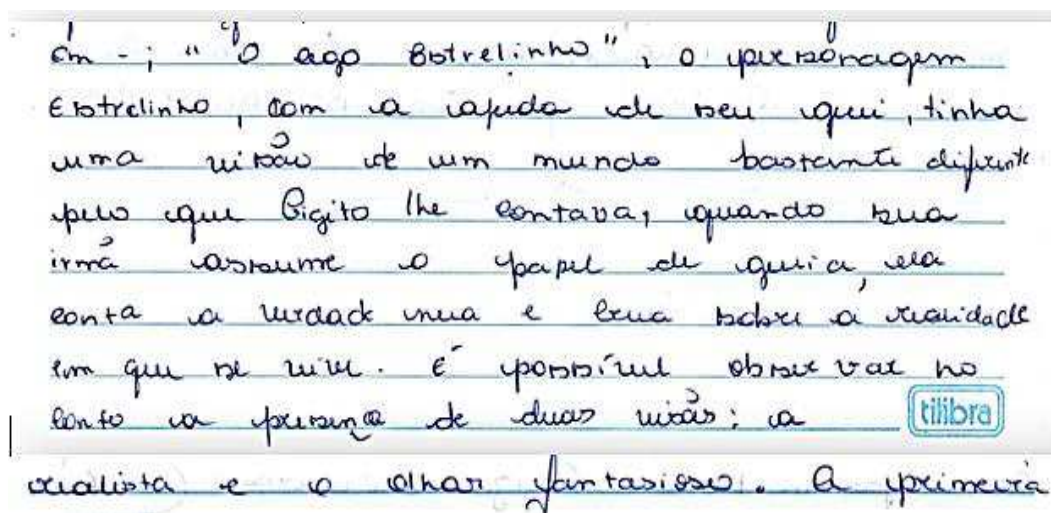 em -; "O cego Estrelinho", o personagem
Estrelinho, com a ajuda de seu gui, tinha
uma visão de um mundo bastante difrente
pelo que Gigito lhe contava, quando sua
irmã assume o papel de guia, ela
conta a verdade nua e crua sobre a realidade
em que se vive. É possível observar no
conto a presença de duas visões: a
tilibra
realista e o olhar fantasioso. A primeira